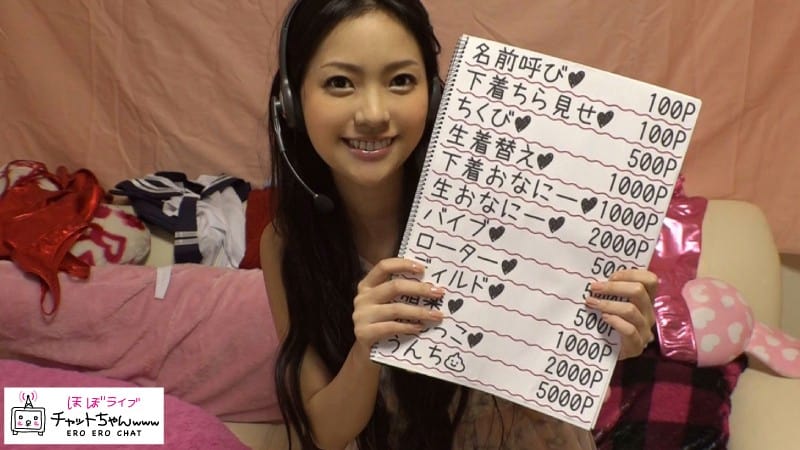 名前呼び♥ 100P
下着ちら見せ♥ 100P
ちくび♥ 500P
生着替え♥ 1000P
下着おなにー♥ 1000P
生おなにー♥ 2000P
バイブ♥
ローター♥
ィルド♥ 500P
♥ 1000P
っこ♥ 2000P
うんち 5000P
ほぼライブ
チャットちゃんwww
ERO ERO CHAT